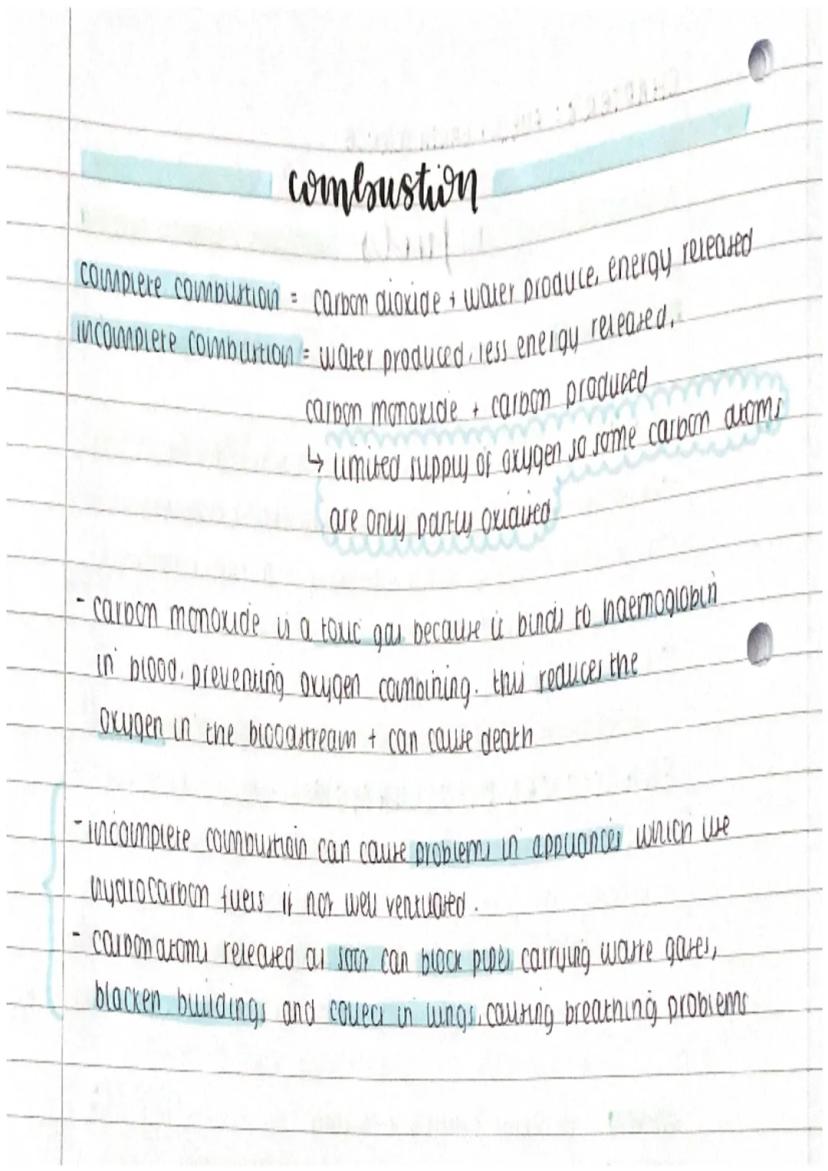 combustion
complete combustion = carbon dioxide + water produce, energy released
incomplete combustion = water produced, less energy released,
carbon monoxide + carbon produced
↳ limited supply of oxygen so some carbon atoms
are only partly oxidised
- carbon monoxide is a toxic gas because it binds to haemoglobin
in blood, preventing oxygen combining. this reduces the
oxygen in the bloodstream + can cause death
- incomplete combustion can cause problems in appliances which use
hydrocarbon fuels if not well ventilated.
- carbon atoms released as soot can block pipes carrying waste gases,
blacken buildings and collect in lungs, causing breathing problems